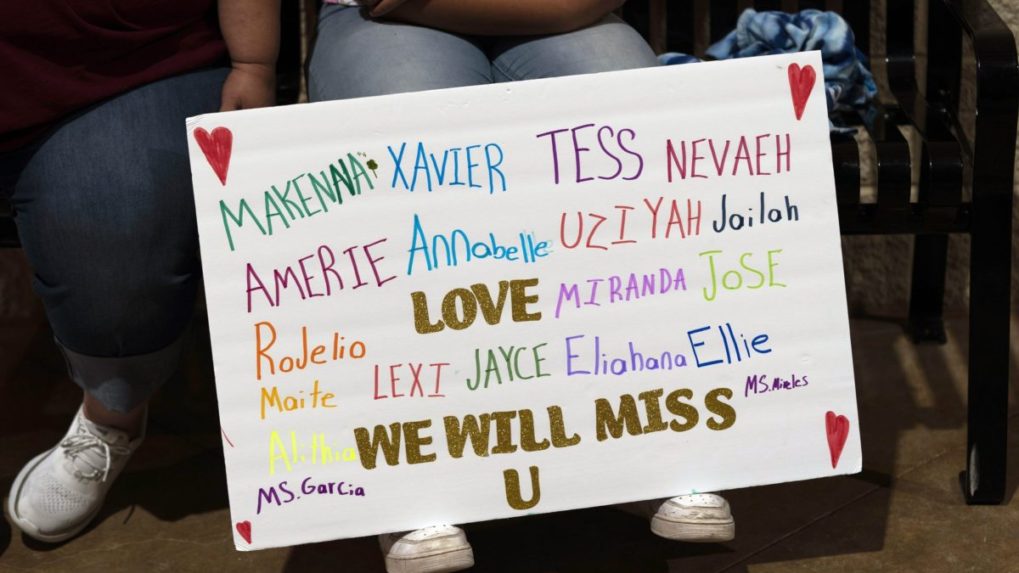 MAKENNA XAVIER TESS NEVAEH
AMERIE Annabelle UZIYAH Jailah
LOVE MIRANDA JOSE
RoJelio LEXI JAYCE Eliahana Ellie
Maite
Alithia WE WILL MISS MS. Mireles
MS. Garcia U